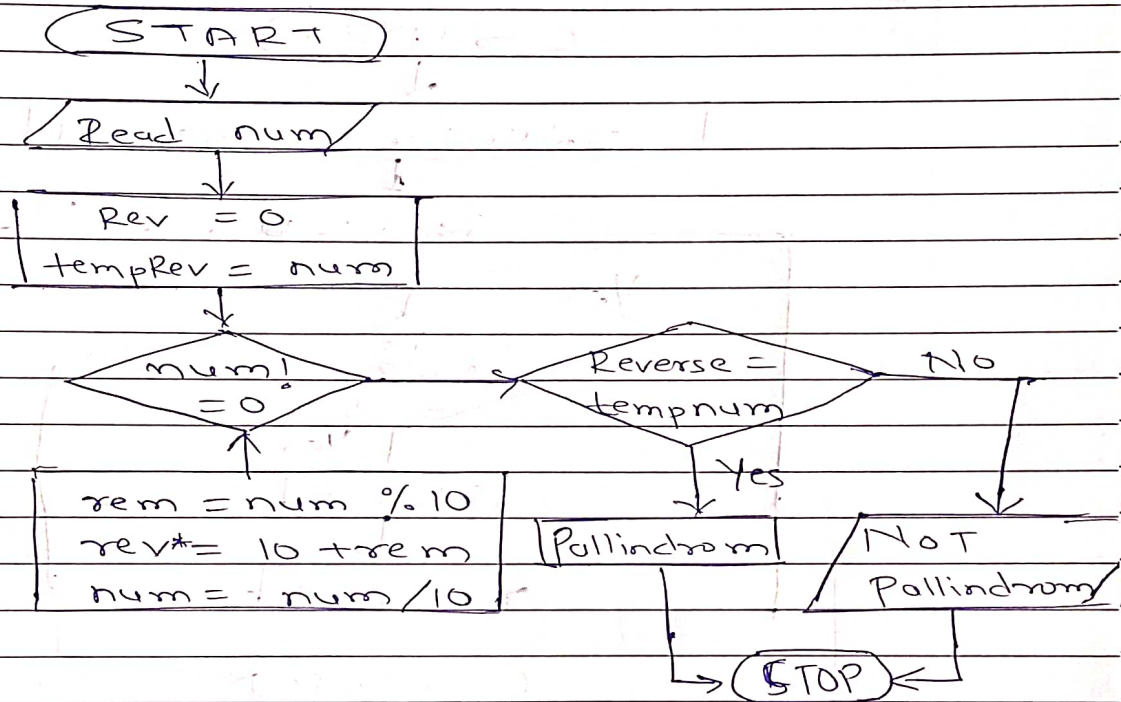 START
Read num
Rev = 0
tempRev = num
num!
= 0
Reverse =
tempnum
No
Yes
rem = num % 10
rev*= 10 + rem
num = num / 10
Pallindrom
NOT
Pallindrom
STOP